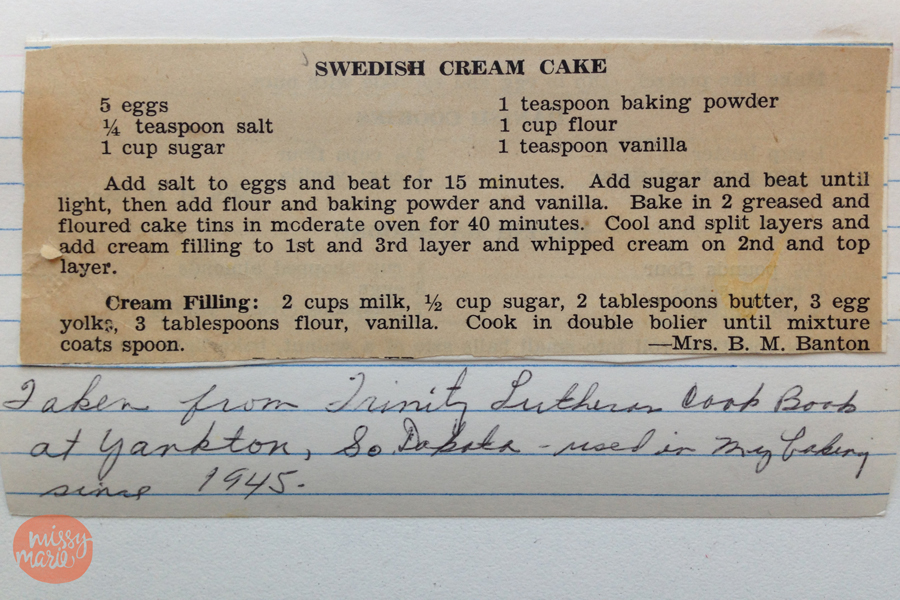 SWEDISH CREAM CAKE
5 eggs
¼ teaspoon salt
1 cup sugar
1 teaspoon baking powder
1 cup flour
1 teaspoon vanilla
Add salt to eggs and beat for 15 minutes. Add sugar and beat until
light, then add flour and baking powder and vanilla. Bake in 2 greased and
floured cake tins in moderate oven for 40 minutes. Cool and split layers and
add cream filling to 1st and 3rd layer and whipped cream on 2nd and top
layer.
Cream Filling: 2 cups milk, ½ cup sugar, 2 tablespoons butter, 3 egg
yolks, 3 tablespoons flour, vanilla. Cook in double bolier until mixture
coats spoon. —Mrs. B. M. Banton
Taken from Trinity Lutheran Cook Book
at Yankton, So Dakota - used in my baking
since 1945.
missy
marie